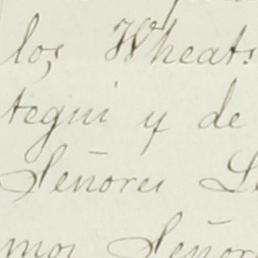 los Wheats
tegui y de
Señores L
mos Señor